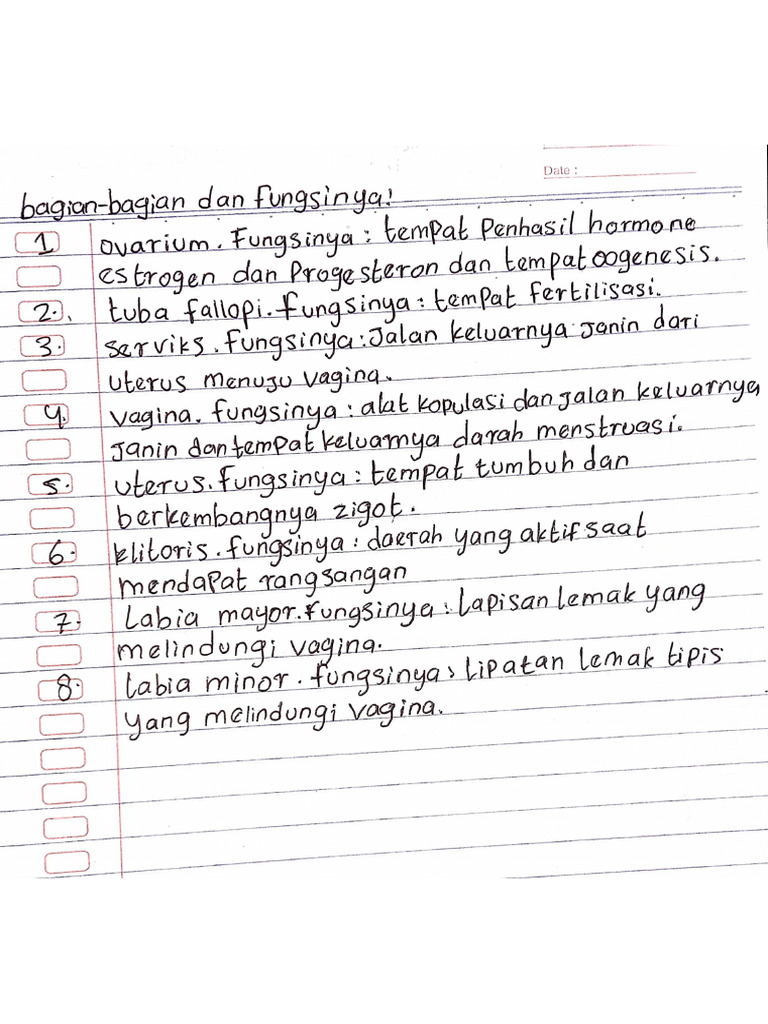 Date :
bagian-bagian dan fungsinya!
1 ovarium. Fungsinya : tempat Penhasil hormone
estrogen dan Progesteron dan tempat oogenesis.
2. tuba fallopi. fungsinya : tempat fertilisasi.
3. serviks. fungsinya : Jalan keluarnya janin dari
uterus menuju vagina.
4. vagina. fungsinya : alat kopulasi dan jalan keluarnya
janin dan tempat keluarnya darah menstruasi.
5. uterus. fungsinya : tempat tumbuh dan
berkembangnya zigot.
6. klitoris. fungsinya : daerah yang aktif saat
mendapat rangsangan
7. Labia mayor. fungsinya : lapisan lemak yang
melindungi vagina.
8. labia minor. fungsinya > lipatan lemak tipis
yang melindungi vagina.